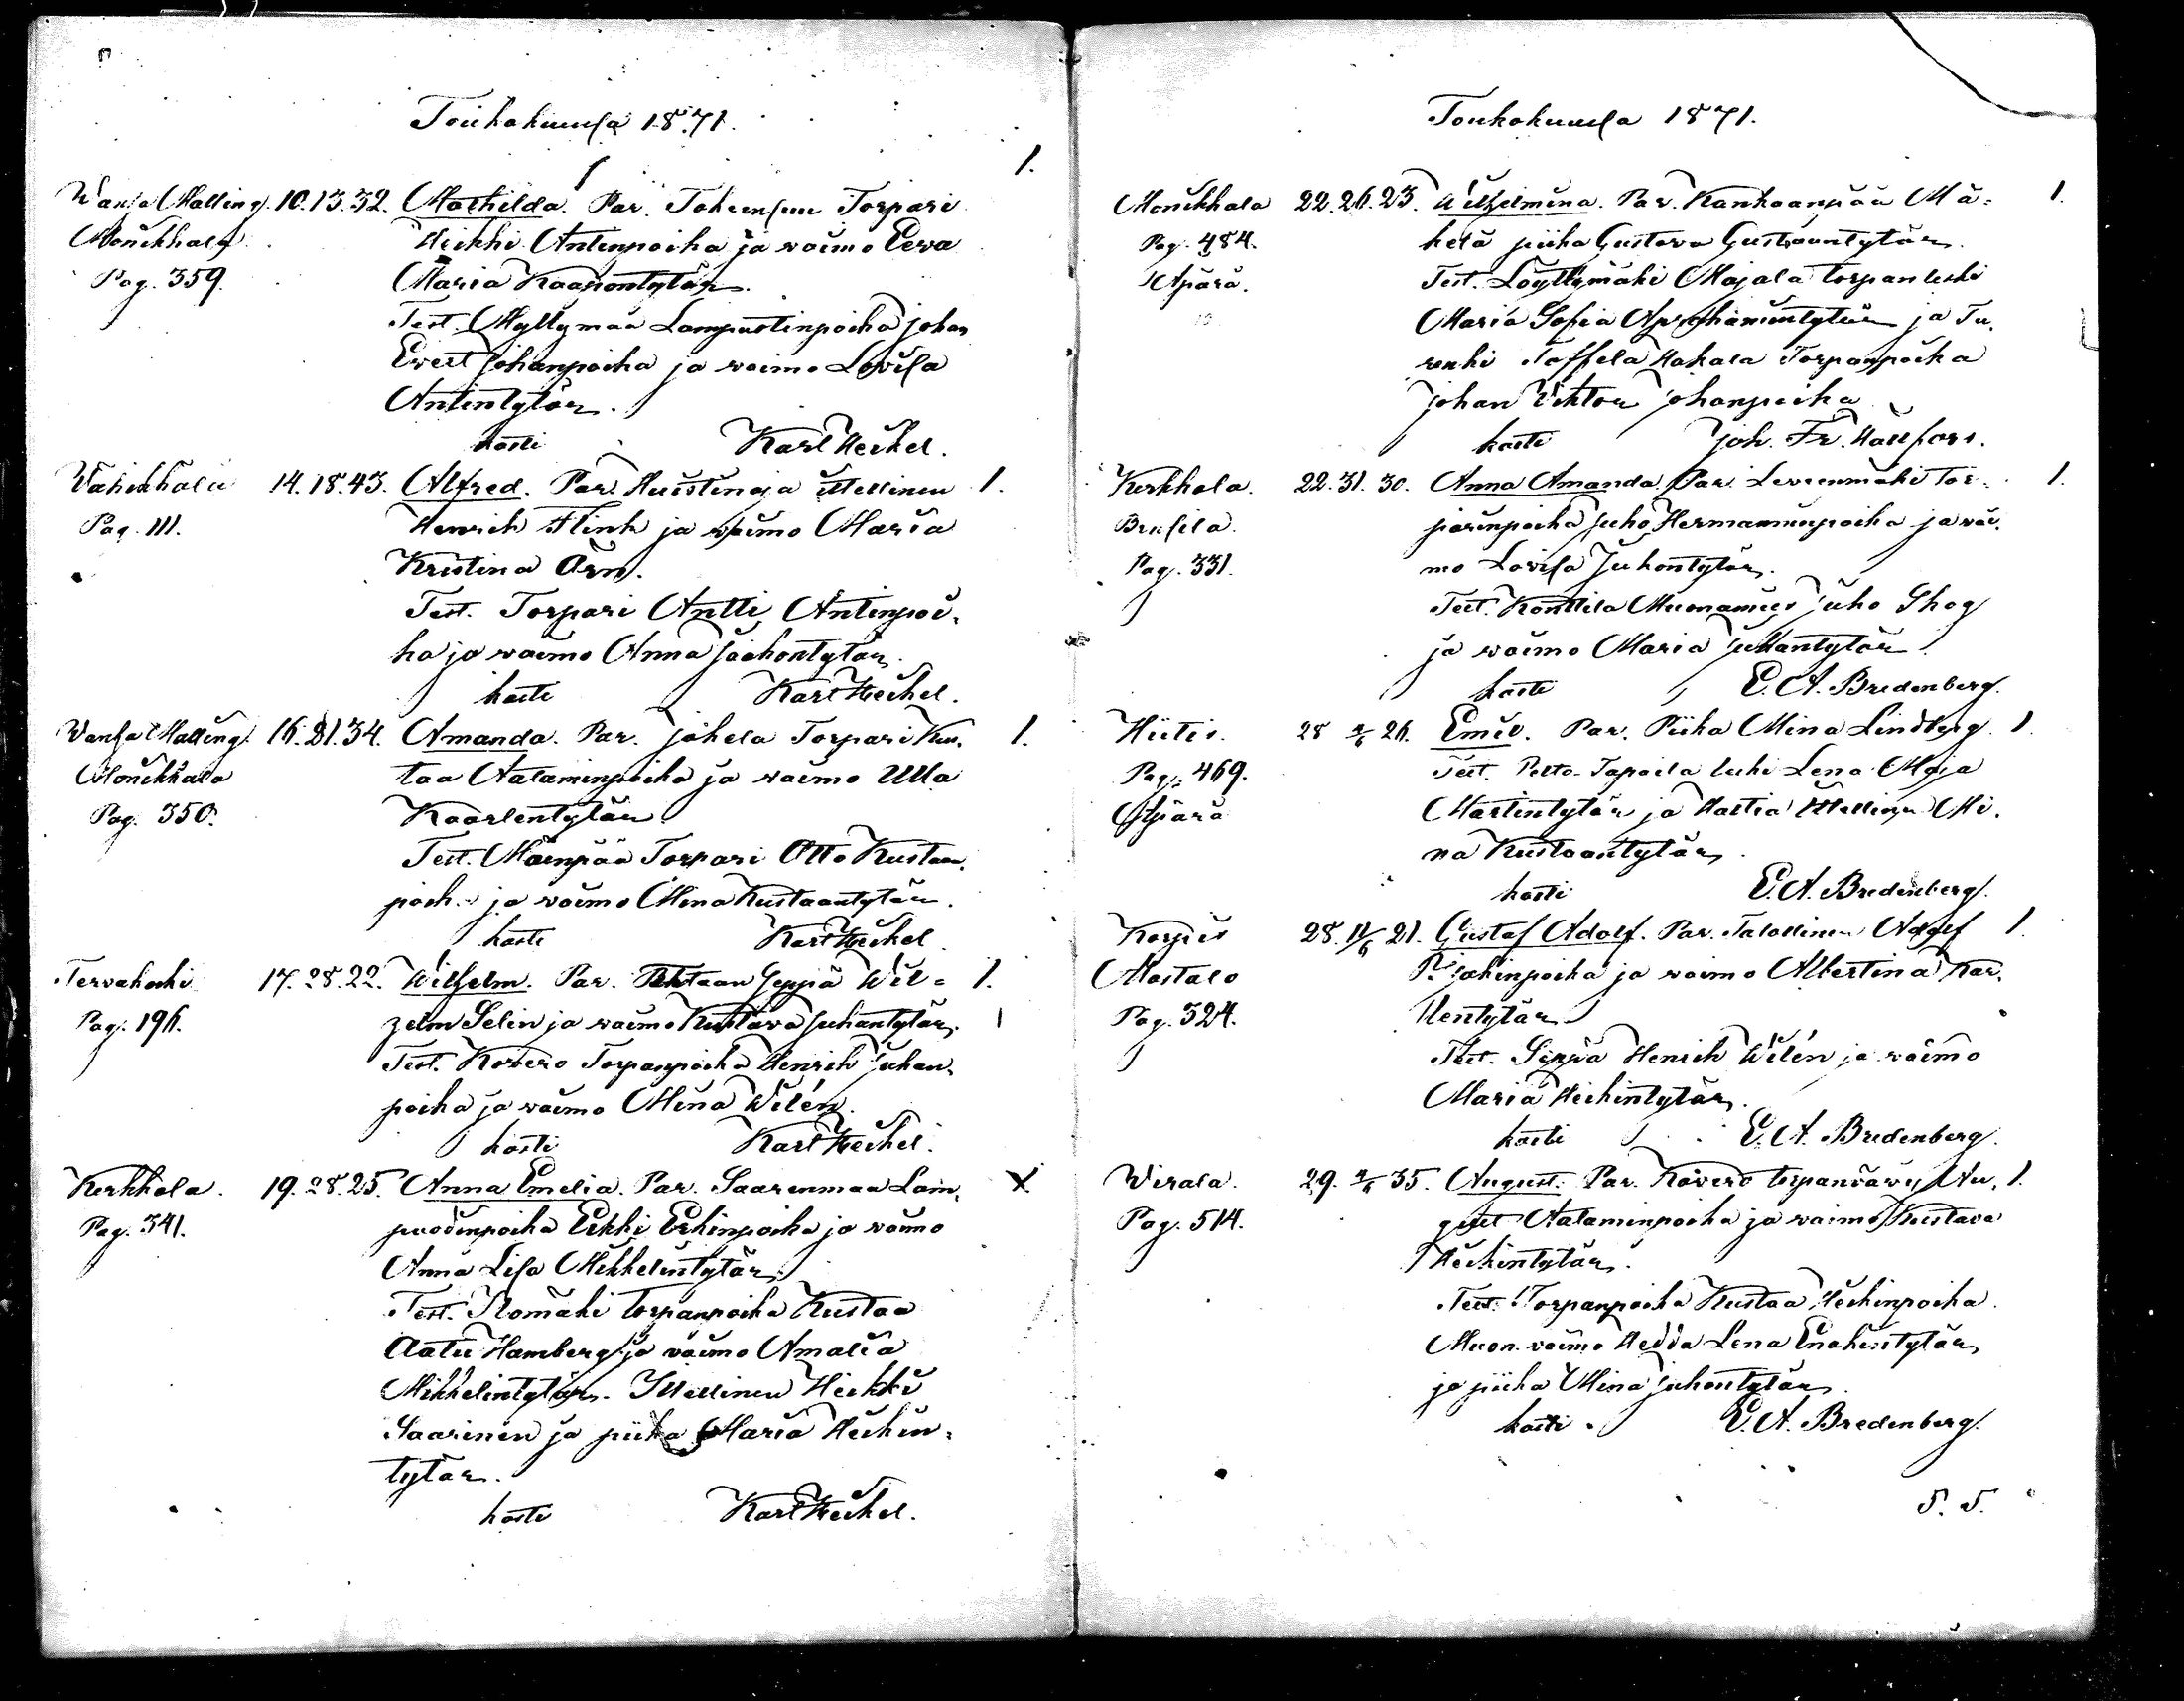 Toukokuussa 1871.
1.
Wansa Malling. 10.13.32. Mathilda. Par. Torpari
Monikkala Heikki Antinpoika ja waimo Eewa
Pag. 359. Maria Kaapontytär.
Test. Myllymaa Lampuotinpoika Johan
Evert Johanpoika ja waimo Lovisa
Antintytär.
kasti Karl Heikel.
Vähikkälä 14.18.43. Alfred. Par. Huistinoja Itsellinen 1.
Pag. 111. Henrich Flink ja waimo Maria
Kristina Örn.
Test. Torpari Antti Antinpoi-
ka ja waimo Anna Jaakontytär.
kasti Karl Heikel.
Wansa Malling. 16.21.34. Amanda. Par. Johela Torpari Kus- 1.
Monikkala taa Aataminpoika ja waimo Ulla
Pag. 350. Kaarlentytär.
Test. Mäenpää Torpari Otto Kustaan-
poik. ja waimo Mina Kustaantytär.
kasti Karl Heikel
Tervakoski 17.28.22. Wilhelm. Par. Seppä Wil- 1.
Pag. 196. helm Selin ja waimo Kustava Juhantytär. 1
Test. Kovero Torpanpoika Henrich Juhan-
poika ja waimo Mina Wilén.
kasti Karl Heikel.
Kerkkola. 19.28.25. Anna Emelia. Par. Saarenmaa Lam- X
Pag. 341. puodinpoika Erkki Erkinpoika ja waimo
Anna Lisa Mikkelintytär.
Test. Romäki torpanpoika Kustaa
Aatu Hamberg ja waimo Amalia
Mikkelintytär. Itsellinen Heikki
Saarinen ja piika Maria Heikin-
tytär.
kasti Karl Heikel.
Toukokuussa 1871.
Monikkala 22.26.23. Wilhelmina. Par. Kankaanpää Mä- 1.
Pag. 484. kelä piika Gustava Gustaantytär.
Äpärä. Test. Löyttymäki Majala torpan leski
Maria Sofia Aprahamintytär ja Tu-
renki Toffela Torpanpoika
Johan Viktor Johanpoika
kasti Joh. Fr. Hällfors.
Kerkkola. 22.31.30. Anna Amanda. Par. Leveenmäki Tor- 1.
Brusila. parinpoika Juho Hermanninpoika ja wai-
Pag. 331. mo Lovisa Juhontytär.
Test. Konttila Muonamies Juho Skog
ja waimo Maria Juhantytär.
kasti E. A. Bredenberg.
Hiitis. 28 4/6 26. Emil. Par. Piika Mina Lindberg. 1.
Pag. 469. Test. Pelto-Tapoila leski Lena Maja
Äpärä Martintytär ja Itsellinen Mi-
na Kustaantytär.
kasti E. A. Bredenberg.
Korpis 28. 11/6 21. Gustaf Adolf. Par. Talollinen Adolf 1.
Mastalo Prijakinpoika ja waimo Albertina Kar-
Pag. 324. llentytär.
Test. Seppä Henrik Wilén ja waimo
Maria Heikintytär.
kasti E. A. Bredenberg.
Wirala. 29. 4/6 35. August. Par. Kovero torpanvävy Au- 1.
Pag. 514. gust Aataminpoika ja waimo Kustava
Heikintytär.
Test. Torpanpoika Kustaa Heikinpoika
Muon. waimo Hedda Lena Enokintytär
ja piika Mina Juhontytär.
kasti E. A. Bredenberg.
5. 5.